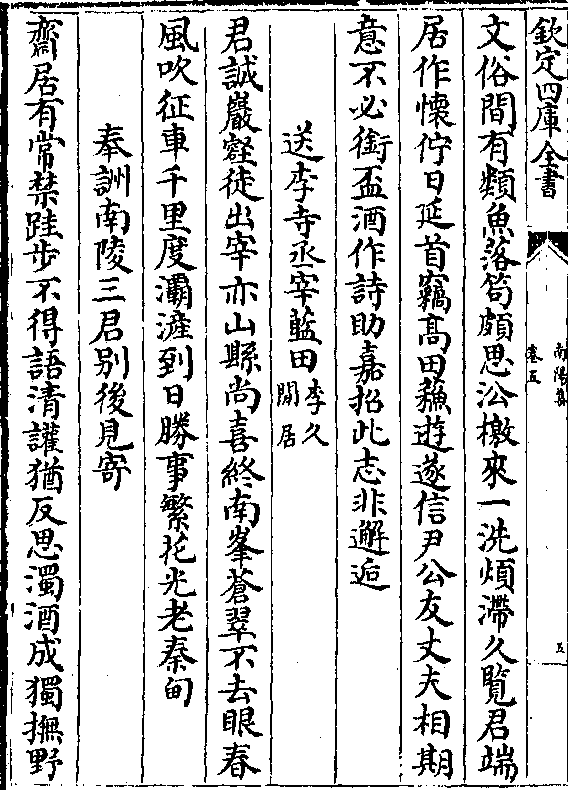 欽定四庫全書
南陽集
卷五
五
文俗間有類魚落笱頗思公檄來一洗煩滯久覧君端
居作懷佇日延首竊髙田蘓遊遂信尹公友丈夫相期
意不必銜盃酒作詩助嘉招此志非邂逅
送李寺丞宰藍田李久閑居
君誠巖壑徒出宰亦山縣尚喜終南峯蒼翠不去眼春
風吹征車千里度灞滻到日勝事繁花光老秦甸
奉詶南陵三君别後見寄
齋居有常禁跬步不得語清讙猶反思濁酒成獨撫野